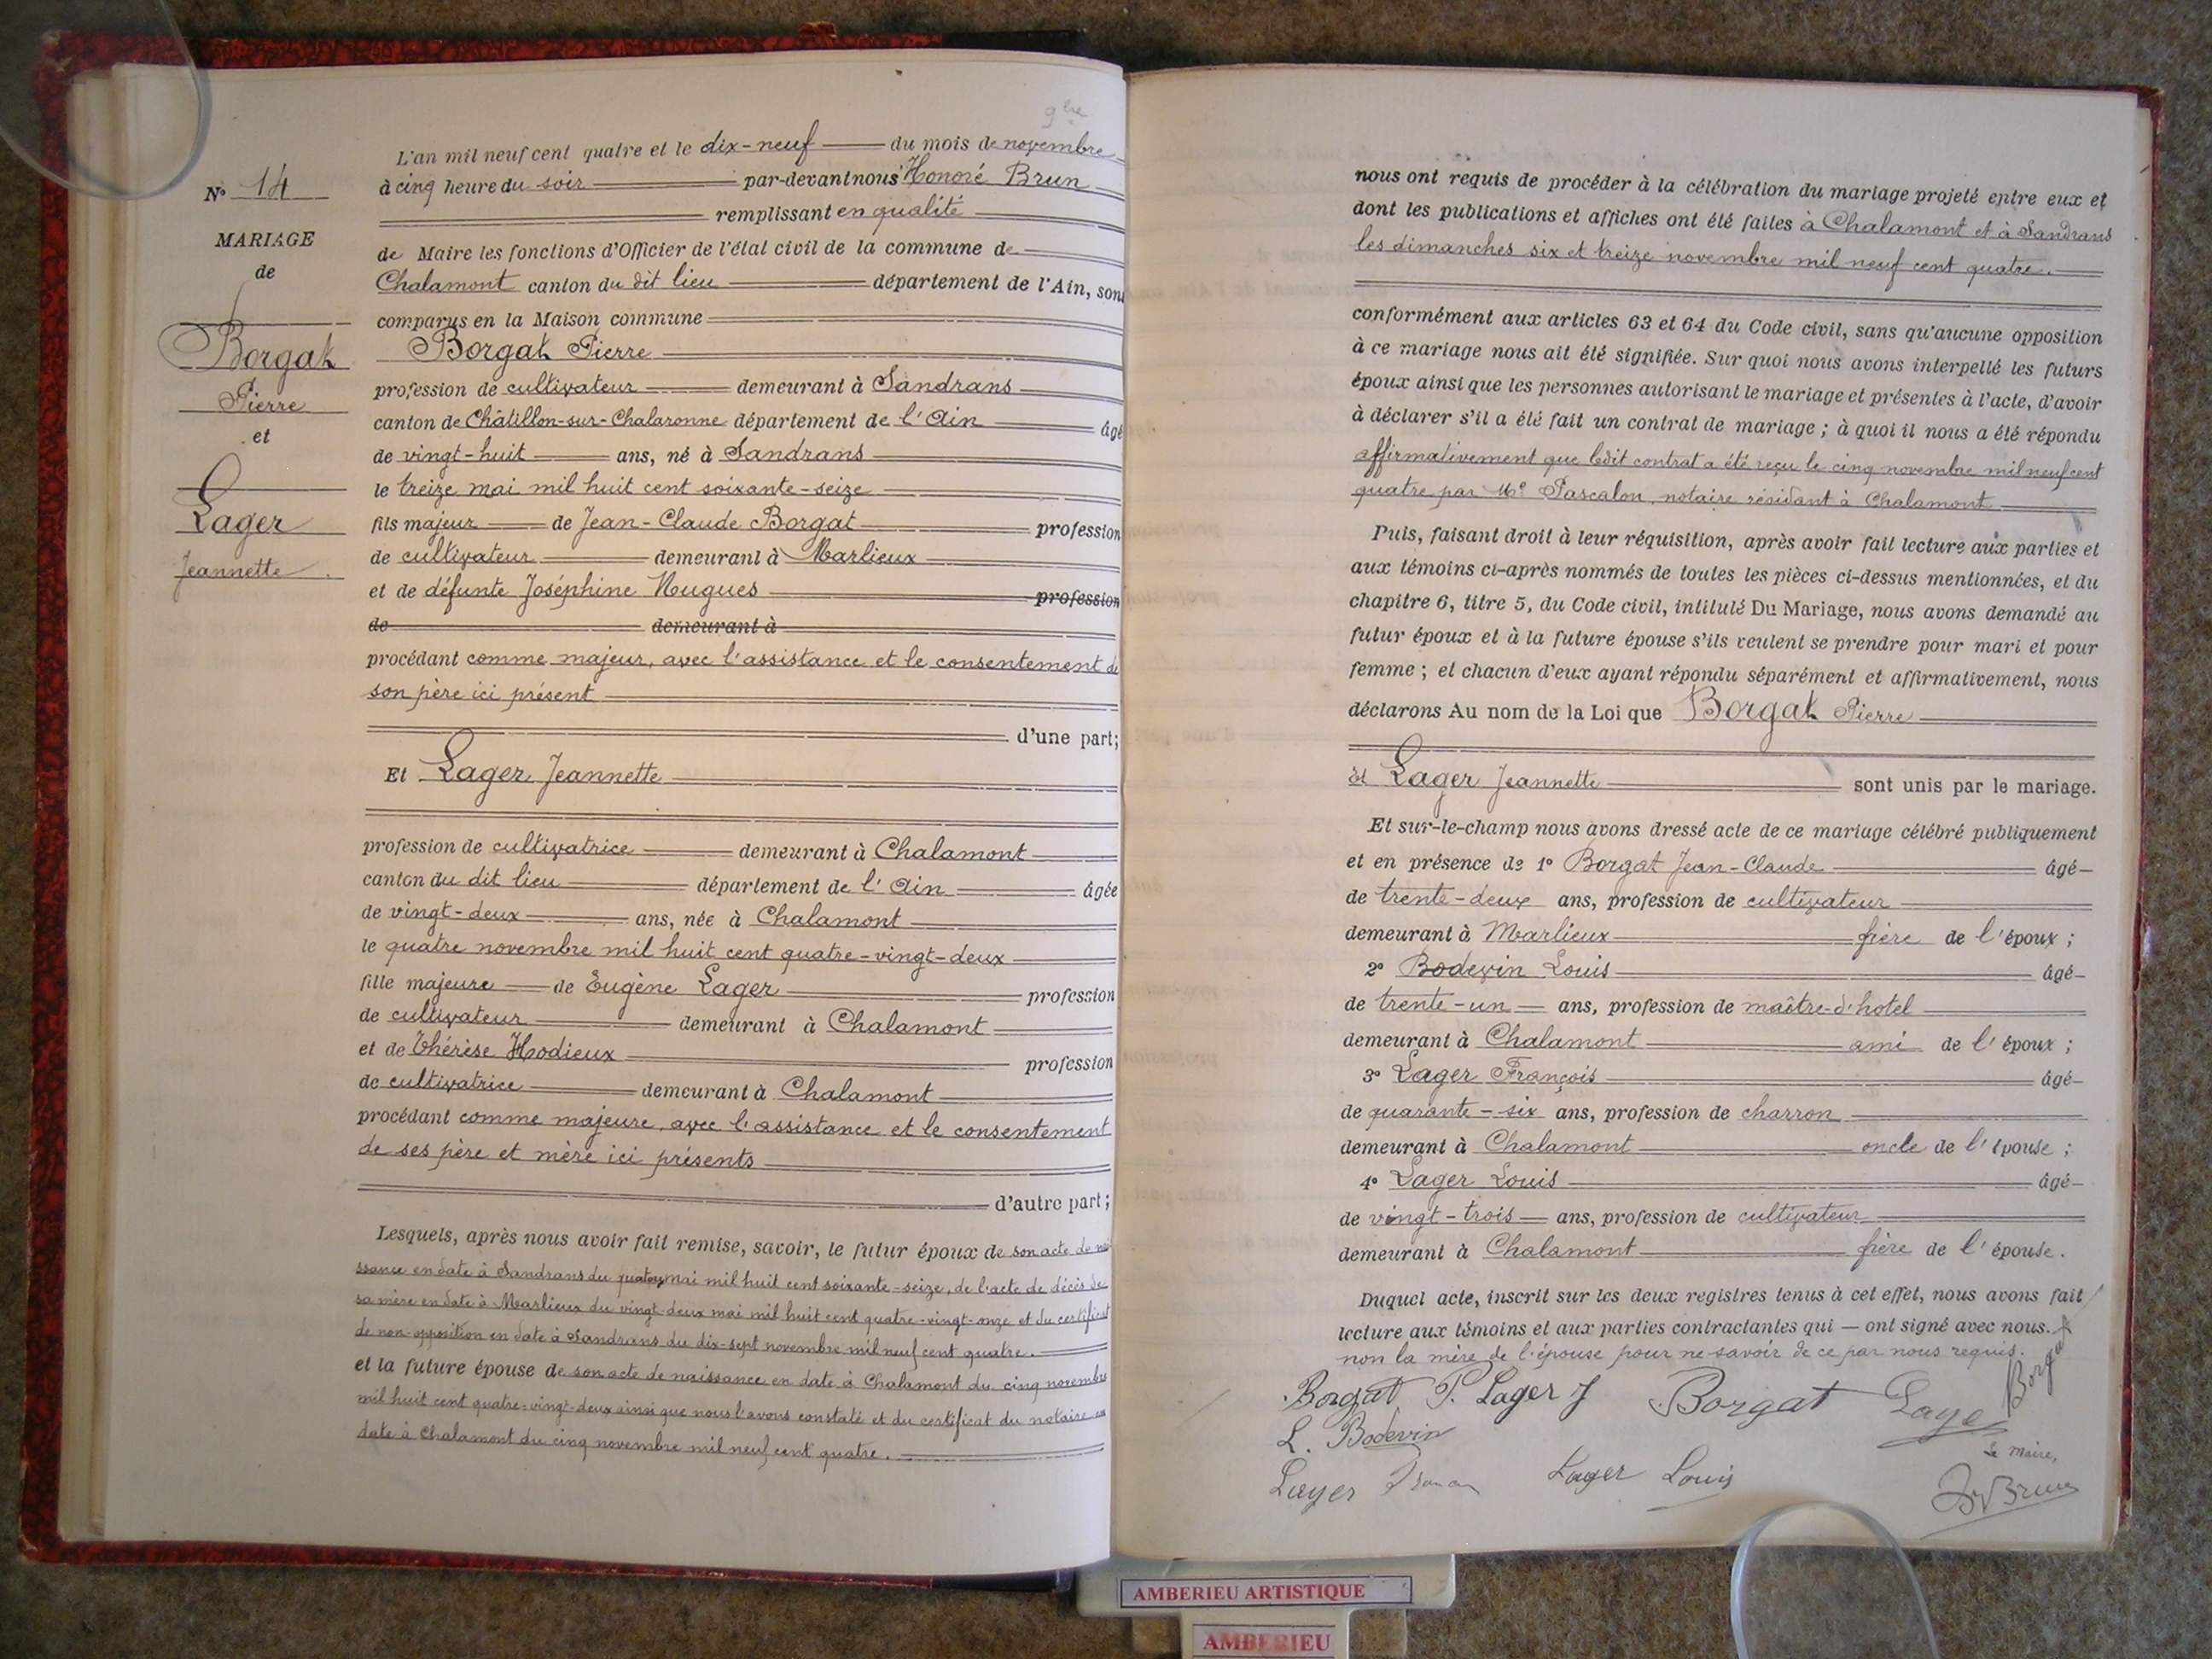 9bre
L'an mil neuf cent quatre et le dix-neuf du mois de novembre
à cinq heure du soir par-devant nous Honoré Brun
remplissant en qualité
de Maire les fonctions d'Officier de l'état civil de la commune de
Chalamont canton du dit lieu département de l'Ain, sont
comparus en la Maison commune
N° 14
MARIAGE
de
Borgat
Pierre
et
Lager
Jeannette
Borgat Pierre
profession de cultivateur demeurant à Sandrans
canton de Châtillon-sur-Chalaronne département de l'Ain âgé
de vingt-huit ans, né à Sandrans
le treize mai mil huit cent soixante-seize
fils majeur de Jean-Claude Borgat profession
de cultivateur demeurant à Marlieux
et de défunte Joséphine Nugues profession
de demeurant à
procédant comme majeur, avec l'assistance et le consentement de
son père ici présent
d'une part;
Et Lager Jeannette
profession de cultivatrice demeurant à Chalamont
canton du dit lieu département de l'Ain âgée
de vingt-deux ans, née à Chalamont
le quatre novembre mil huit cent quatre-vingt-deux
fille majeure de Eugène Lager profession
de cultivateur demeurant à Chalamont
et de Thérèse Hodieux profession
de cultivatrice demeurant à Chalamont
procédant comme majeure, avec l'assistance et le consentement
de ses père et mère ici présents
d'autre part;
Lesquels, après nous avoir fait remise, savoir, le futur époux de son acte de nai
ssance en date à Sandrans du mai mil huit cent soixante-seize, de l'acte de décès de
sa mère en date à Marlieux du vingt-deux mai mil huit cent quatre-vingt-onze et du certificat
de non-opposition en date à Sandrans du dix-sept novembre mil neuf cent quatre.
et la future épouse de son acte de naissance en date à Chalamont du cinq novembre
mil huit cent quatre-vingt-deux ainsi que nous l'avons constaté et du certificat du notaire en
date à Chalamont du cinq novembre mil neuf cent quatre.
nous ont requis de procéder à la célébration du mariage projeté entre eux et
dont les publications et affiches ont été faites à Chalamont et à Sandrans
les dimanches six et treize novembre mil neuf cent quatre.
conformément aux articles 63 et 64 du Code civil, sans qu'aucune opposition
à ce mariage nous ait été signifiée. Sur quoi nous avons interpellé les futurs
époux ainsi que les personnes autorisant le mariage et présentes à l'acte, d'avoir
à déclarer s'il a été fait un contrat de mariage ; à quoi il nous a été répondu
affirmativement que ledit contrat a été reçu le cinq novembre mil neuf cent
quatre par Me Pascalon, notaire résidant à Chalamont
Puis, faisant droit à leur réquisition, après avoir fait lecture aux parties et
aux témoins ci-après nommés de toutes les pièces ci-dessus mentionnées, et du
chapitre 6, titre 5, du Code civil, intitulé Du Mariage, nous avons demandé au
futur époux et à la future épouse s'ils veulent se prendre pour mari et pour
femme ; et chacun d'eux ayant répondu séparément et affirmativement, nous
déclarons Au nom de la Loi que Borgat Pierre
et Lager Jeannette sont unis par le mariage.
Et sur-le-champ nous avons dressé acte de ce mariage célébré publiquement
et en présence de 1° Borgat Jean-Claude âgé
de trente-deux ans, profession de cultivateur
demeurant à Marlieux frère de l'époux ;
2° Bodevin Louis âgé
de trente-un ans, profession de maître-d'hotel
demeurant à Chalamont ami de l'époux ;
3° Lager François âgé
de quarante-six ans, profession de charron
demeurant à Chalamont oncle de l'épouse ;
4° Lager Louis âgé
de vingt-trois ans, profession de cultivateur
demeurant à Chalamont frère de l'épouse.
Duquel acte, inscrit sur les deux registres tenus à cet effet, nous avons fait
lecture aux témoins et aux parties contractantes qui — ont signé avec nous.
non la mère de l'épouse pour ne savoir de ce par nous requis.
Borgat P. Lager J Borgat Lager Borgat
L. Bodevin
Le maire,
Lager Lager Louis Brun
AMBERIEU ARTISTIQUE
AMBERIEU